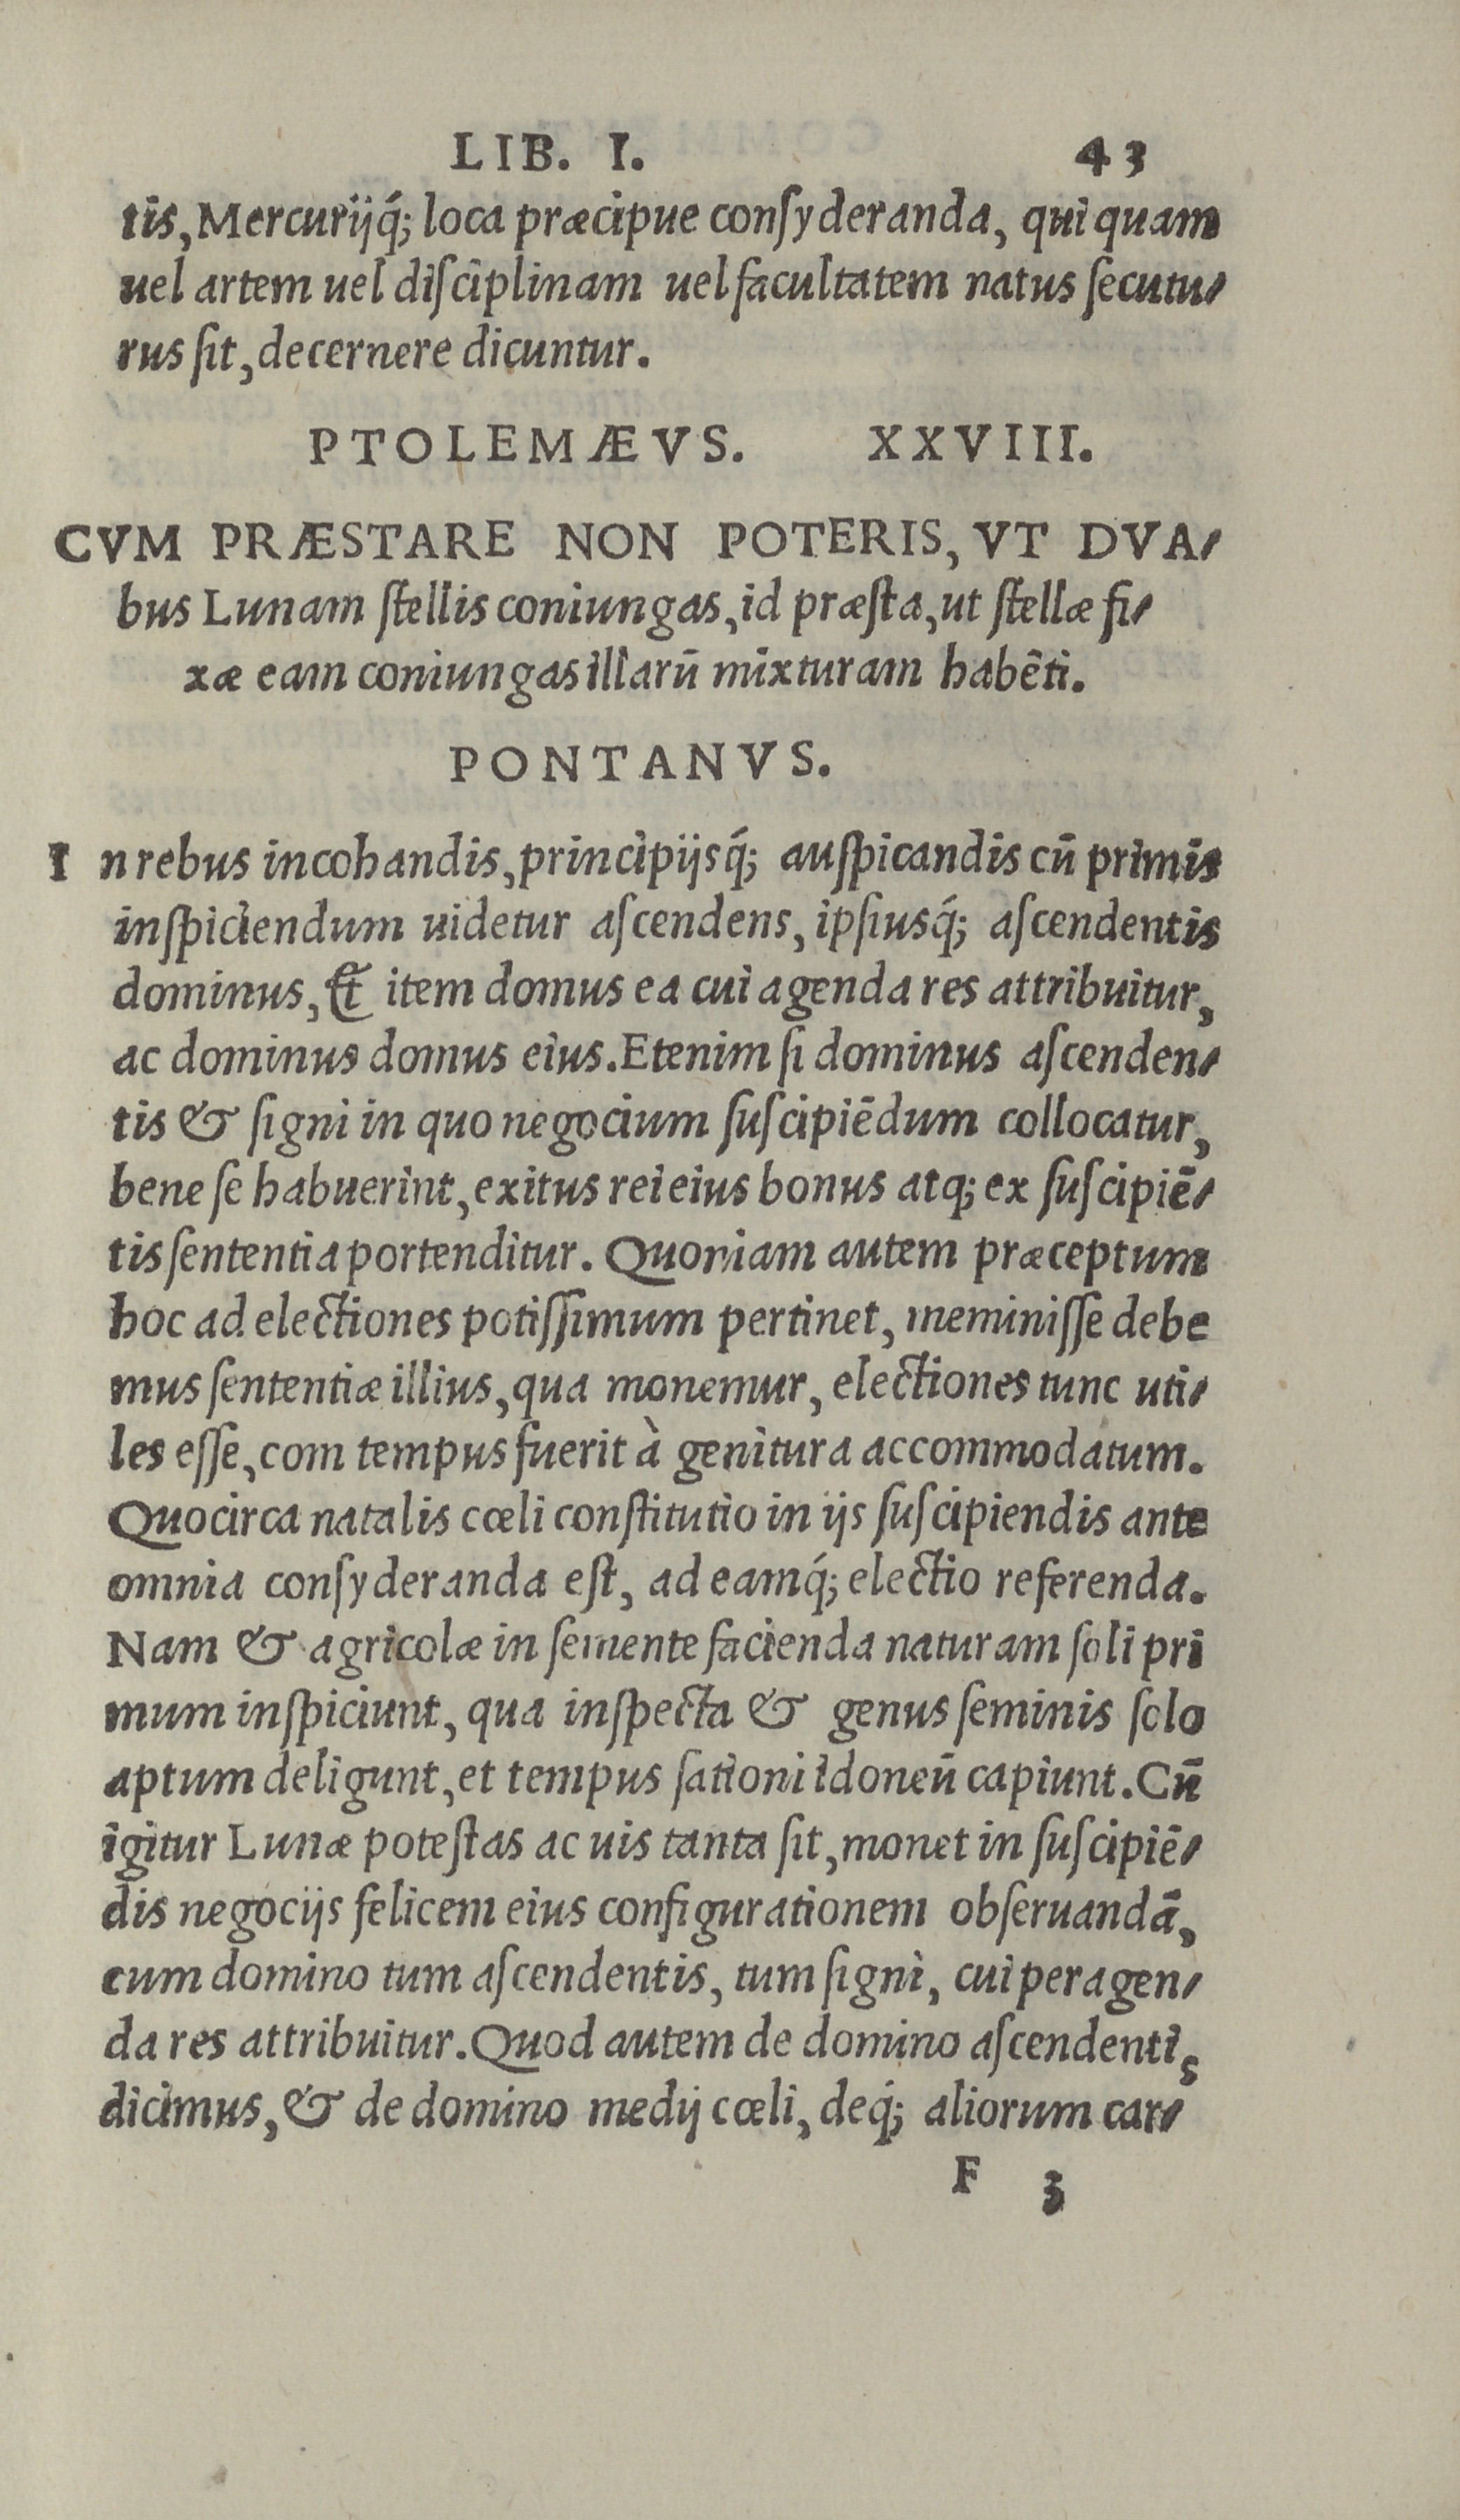 LIB. I. 43
tis, Mercurijq́; loca præcipue conſyderanda, qui quam
uel artem uel diſciplinam uel facultatem natus ſecutu-
rus ſit, decernere dicuntur.
PTOLEMÆVS. XXVIII.
CVM PRÆSTARE NON POTERIS, VT DVA-
bus Lunam ſtellis coniungas, id præſta, ut ſtellæ fi-
xæ eam coniungas illarū mixturam habēti.
PONTANVS.
I n rebus incohandis, principijsq́; auſpicandis cū primis
inſpiciendum uidetur aſcendens, ipſiusq́; aſcendentis
dominus, & item domus ea cui agenda res attribuitur,
ac dominus domus eius. Etenim ſi dominus aſcenden-
tis & ſigni in quo negocium ſuſcipiēdum collocatur,
bene ſe habuerint, exitus rei eius bonus atq; ex ſuſcipiē-
tis ſententia portenditur. Quoniam autem præceptum
hoc ad electiones potiſſimum pertinet, meminiſſe debe
mus ſententiæ illius, qua monemur, electiones tunc uti-
les eſſe, com tempus fuerit à genitura accommodatum.
Quocirca natalis cœli conſtitutio in ijs ſuſcipiendis ante
omnia conſyderanda eſt, ad eamq́; electio referenda.
Nam & agricolæ in ſemente facienda naturam ſoli pri
mum inſpiciunt, qua inſpecta & genus ſeminis ſolo
aptum deligunt, et tempus ſationi idoneū capiunt. Cū
igitur Lunæ poteſtas ac uis tanta ſit, monet in ſuſcipiē-
dis negocijs felicem eius configurationem obſeruandā,
cum domino tum aſcendentis, tum ſigni, cui peragen-
da res attribuitur. Quod autem de domino aſcendentis
dicimus, & de domino medij cœli, deq́; aliorum car-
F 3